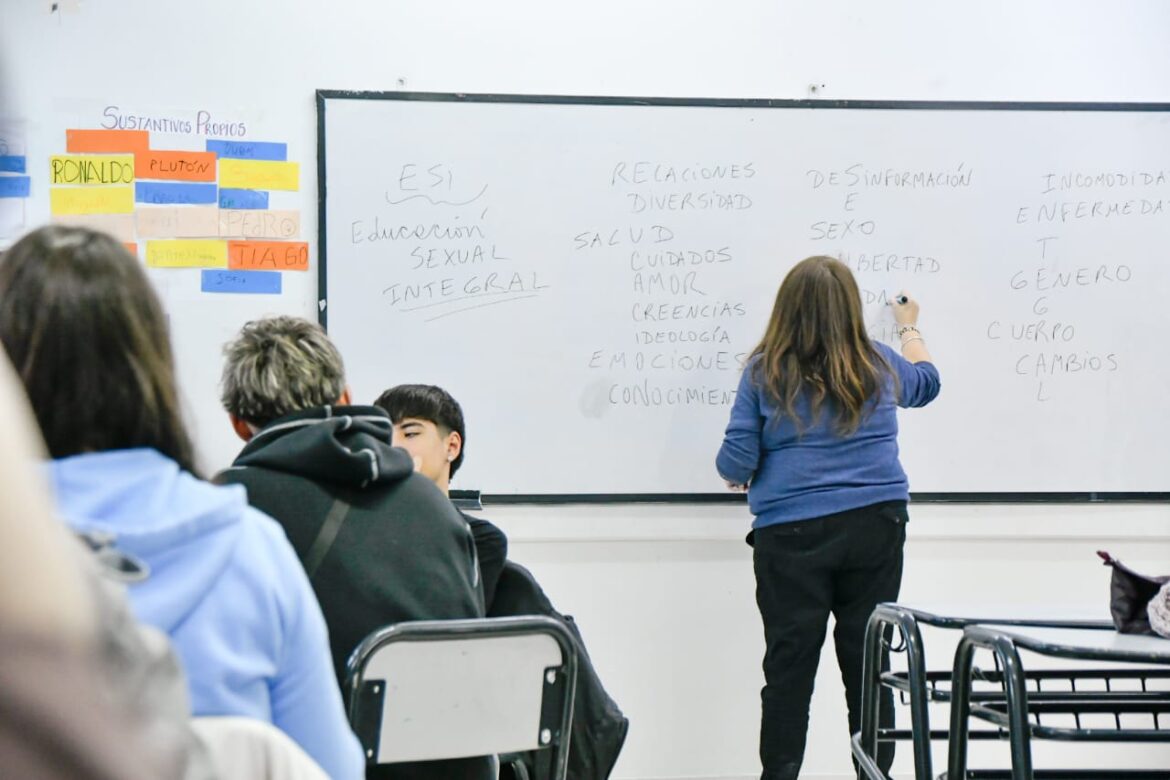 SUSTANTIVOS PROPIOS
RONALDO
PLUTÓN
PEDRO
TIAGO
SOFIA
ESI
Educación
SEXUAL
INTEGRAL
RELACIONES
DIVERSIDAD
SALUD
CUIDADOS
AMOR
CREENCIAS
IDEOLOGÍA
EMOCIONES
CONOCIMIENT
DESINFORMACIÓN
E
SEXO
IBERTAD
INCOMODIDA
ENFERMEDA
T
GÉNERO
G
CUERPO
CAMBIOS
L